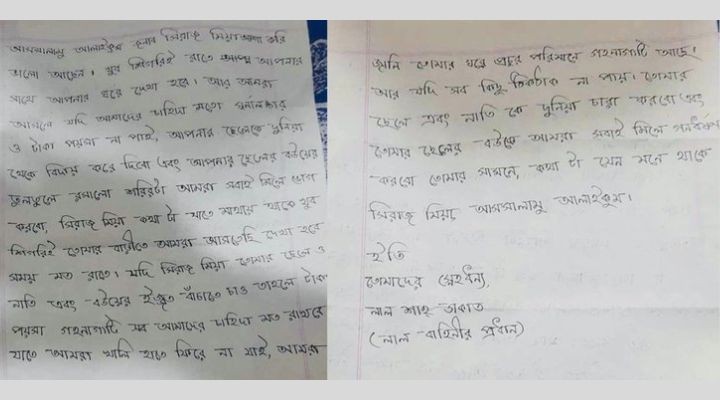 আসসালামু আলাইকুম জনাব সিরাজ মিয়া আশা করি
ভালো আছেন। খুব শিগরিই রাতে আপনার
সাথে আপনার ঘরে দেখা হবে। আর আমরা
আসলে যদি আমাদের চাহিদা মতো
ও টাকা পয়সা না পাই, আপনার ছেলেকে দুনিয়া
থেকে বিদায় করে দিবো এবং আপনার ছেলের বউয়ের
তুলতুলে রসালো শরিরটা আমরা সবাই মিলে ভোগ
করবো, সিরাজ মিয়া কথা টা যাতে মাথায় থাকে খুব
শিগরিই তোমার বাড়ীতে আমরা আসতেছি দেখা হবে
সময় মত রাতে। যদি সিরাজ মিয়া তোমার ছেলে ও
নাতি এবং বউয়ের ইজ্জত বাঁচাতে চাও তাহলে টাকা
পয়সা গহনাগাটি সব আমাদের চাহিদা মত রাখবে
যাতে আমরা খালি হাতে ফিরে না যাই, আমরা
জানি তোমার ঘরে প্রচুর পরিমানে গহনাগাটি আছে।
আর যদি সব কিছু ঠিকঠাক না পায়। তোমার
ছেলে এবং নাতি কে দুনিয়া ছারা করবো এবং
তোমার ছেলের বউকে আমরা সবাই মিলে গনধর্ষণ
করবো তোমার সামনে, কথা টা যেন মনে থাকে
সিরাজ মিয়া আসসালামু আলাইকুম।
ইতি
তোমাদের স্নেহধন্য,
লাল শাহ ডাকাত
(লাল বাহিনীর প্রধান)